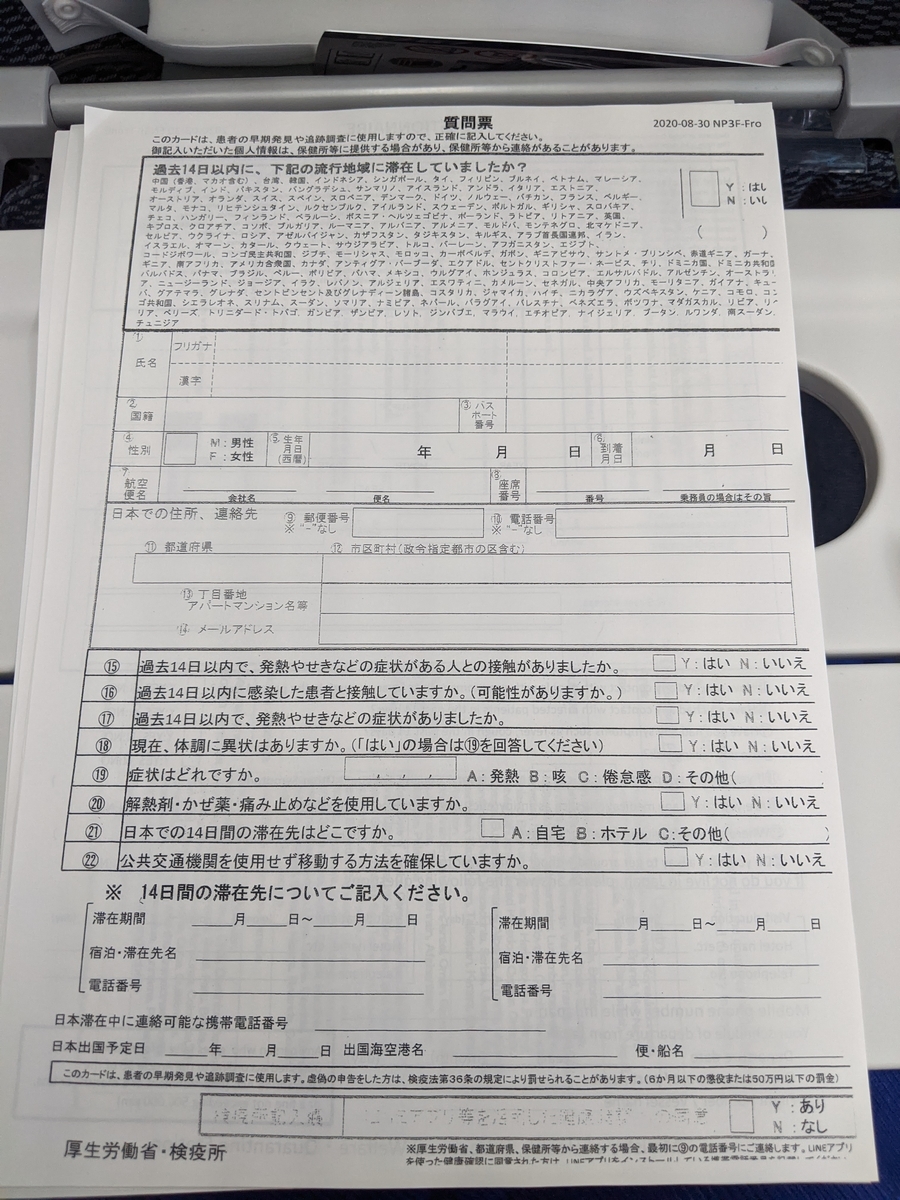 質問票
2020-08-30 NP3F-Fro
このカードは、患者の早期発見や追跡調査に使用しますので、正確に記入してください。
御記入いただいた個人情報は、保健所等に提供する場合があり、保健所等から連絡があることがあります。
過去14日以内に、下記の流行地域に滞在していましたか？
中国（香港、マカオ含む）、台湾、韓国、インドネシア、シンガポール、タイ、フィリピン、ブルネイ、ベトナム、マレーシア、
モルディブ、インド、パキスタン、バングラデシュ、サンマリノ、アイスランド、アンドラ、イタリア、エストニア、
オーストリア、オランダ、スイス、スペイン、スロベニア、デンマーク、ドイツ、ノルウェー、バチカン、フランス、ベルギー、
マルタ、モナコ、リヒテンシュタイン、ルクセンブルク、アイルランド、スウェーデン、ポルトガル、ギリシャ、スロバキア、
チェコ、ハンガリー、フィンランド、ベラルーシ、ボスニア・ヘルツェゴビナ、ポーランド、ラトビア、リトアニア、英国、
キプロス、クロアチア、コソボ、ブルガリア、ルーマニア、アルバニア、アルメニア、モルドバ、モンテネグロ、北マケドニア、
セルビア、ウクライナ、ロシア、アゼルバイジャン、カザフスタン、タジキスタン、キルギス、アラブ首長国連邦、イラン、
イスラエル、オマーン、カタール、クウェート、サウジアラビア、トルコ、バーレーン、アフガニスタン、エジプト、
コートジボワール、コンゴ民主共和国、ジブチ、モーリシャス、モロッコ、カーボベルデ、ガボン、ギニアビサウ、サントメ・プリンシペ、赤道ギニア、ガーナ、
ギニア、南アフリカ、アメリカ合衆国、カナダ、アンティグア・バーブーダ、エクアドル、セントクリストファー・ネービス、チリ、ドミニカ国、ドミニカ共和国
バルバドス、パナマ、ブラジル、ペルー、ボリビア、バハマ、メキシコ、ウルグアイ、ホンジュラス、コロンビア、エルサルバドル、アルゼンチン、オーストラリ
ア、ニュージーランド、ジョージア、イラク、レバノン、アルジェリア、エスワティニ、カメルーン、セネガル、中央アフリカ、モーリタニア、ガイアナ、キュー
バ、グアテマラ、グレナダ、セントビンセント及びグレナディーン諸島、コスタリカ、ジャマイカ、ハイチ、ニカラグア、ウズベキスタン、ケニア、コモロ、コン
ゴ共和国、シエラレオネ、スリナム、スーダン、ソマリア、ナミビア、ネパール、パラグアイ、パレスチナ、ベネズエラ、ボツワナ、マダガスカル、リビア、リベ
リア、ベリーズ、トリニダード・トバゴ、ガンビア、ザンビア、レソト、ジンバブエ、マラウイ、エチオピア、ナイジェリア、ブータン、ルワンダ、南スーダン、
チュニジア
Y：はい
N：いい
(　　)
① 氏名 フリガナ
漢字
② 国籍 ③ パスポート番号
④ 性別 M：男性 F：女性 ⑤ 生年月日(西暦) 年 月 日 ⑥ 到着月日 月 日
7 航空便名 会社名 便名 ⑧ 座席番号 番号 乗務員の場合はその旨
日本での住所、連絡先 ⑨ 郵便番号 ※ "-"なし ⑩ 電話番号 ※ "-"なし
⑪ 都道府県 ⑫ 市区町村(政令指定都市の区含む)
⑬ 丁目番地
アパートマンション名等
⑭ メールアドレス
⑮ 過去14日以内で、発熱やせきなどの症状がある人との接触がありましたか。 Y：はい N：いいえ
⑯ 過去14日以内に感染した患者と接触していますか。(可能性がありますか。) Y：はい N：いいえ
⑰ 過去14日以内で、発熱やせきなどの症状がありましたか。 Y：はい N：いいえ
⑱ 現在、体調に異状はありますか。(「はい」の場合は⑲を回答してください) Y：はい N：いいえ
⑲ 症状はどれですか。 , , , A：発熱 B：咳 C：倦怠感 D：その他(
⑳ 解熱剤・かぜ薬・痛み止めなどを使用していますか。 Y：はい N：いいえ
㉑ 日本での14日間の滞在先はどこですか。 A：自宅 B：ホテル C：その他( )
㉒ 公共交通機関を使用せず移動する方法を確保していますか。 Y：はい N：いいえ
※ 14日間の滞在先についてご記入ください。
滞在期間 月 日～ 月 日 滞在期間 月 日～ 月 日
宿泊・滞在先名 宿泊・滞在先名
電話番号 電話番号
日本滞在中に連絡可能な携帯電話番号
日本出国予定日 年 月 日 出国海空港名 便・船名
このカードは、患者の早期発見や追跡調査に使用します。虚偽の申告をした方は、検疫法第36条の規定により罰せられることがあります。（6か月以下の懲役または50万円以下の罰金）
検疫所記入欄 等を活用した健康 の同意 Y：あり
N：なし
厚生労働省・検疫所
※厚生労働省、都道府県、保健所等から連絡する場合、最初に⑨の電話番号にご連絡します。LINEアプリ
を使った健康確認に同意された方は、LINEアプリをインストールしている携帯電話番号を